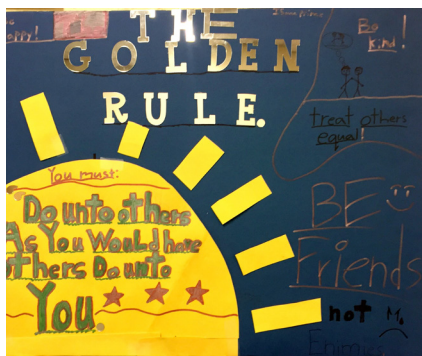 THE
GOLDEN
RULE.
Be
kind!
treat others
equal!
You must:
Do unto others
As You Would have
others Do unto
You.
BE
Friends
not
Enimies